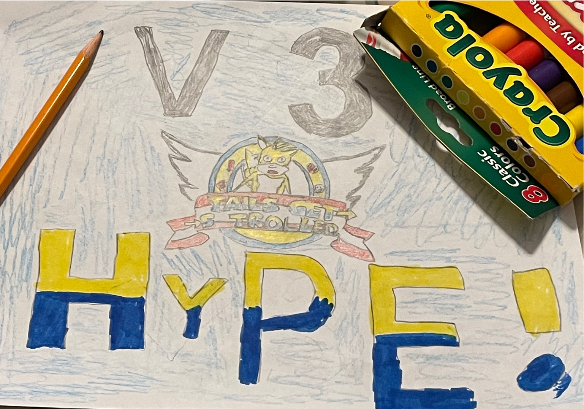 V 3
TAILS GET
S TROLLED
HYPE!
Crayola
8 Classic
Colors
Broad Line
d by Teache